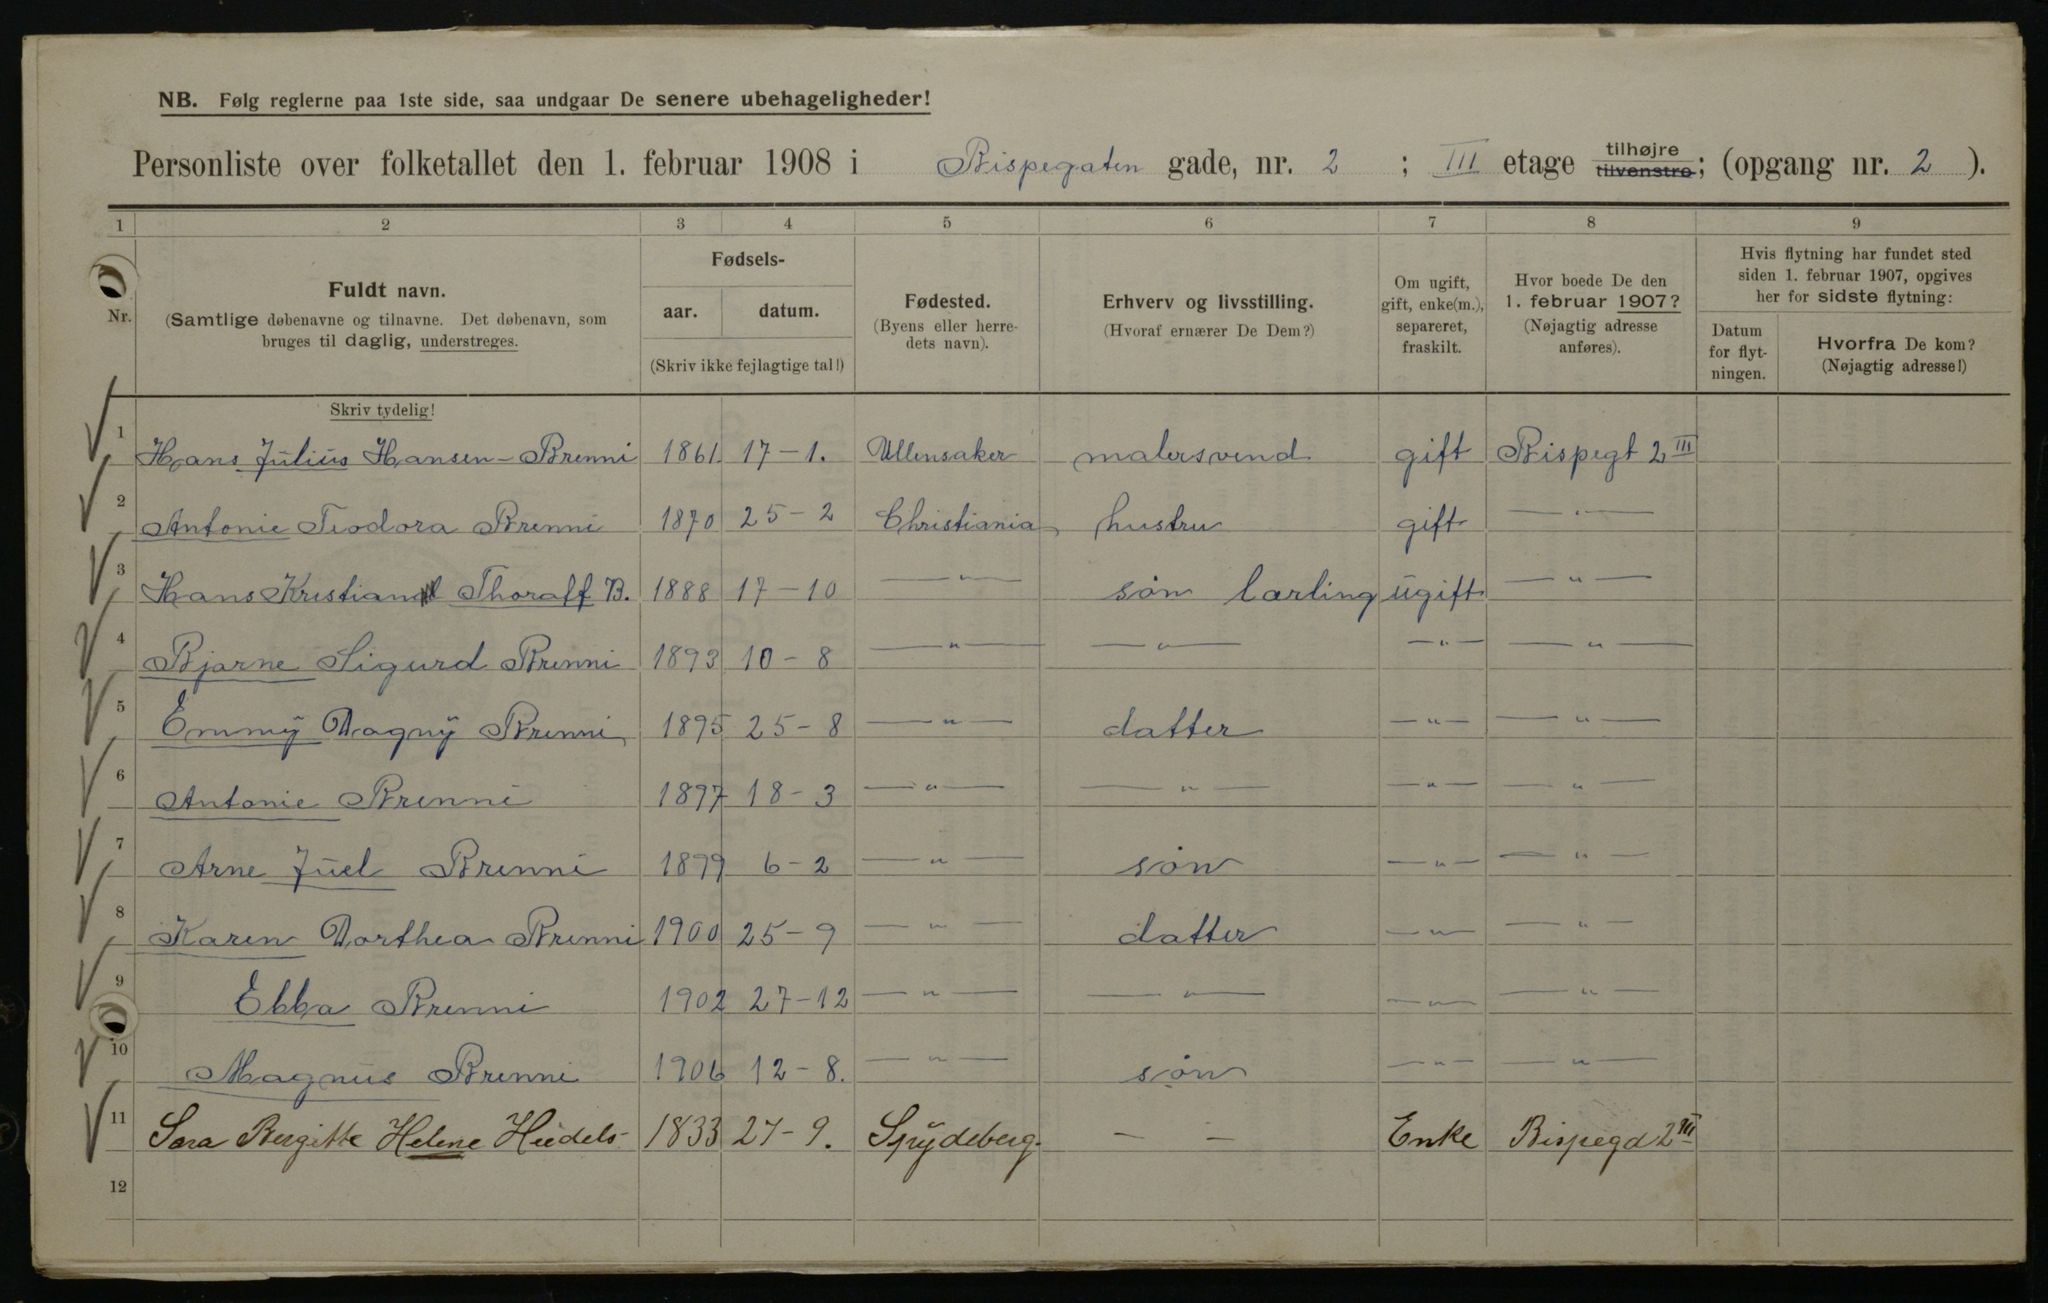 NB. Følg reglerne paa 1ste side, saa undgaar De senere ubehageligheder!
Personliste over folketallet den 1. februar 1908 i Bispegaten gade, nr. 2 ; III etage tilhøjre tilvenstre; (opgang nr. 2 ).
1 2 3 4 5 6 7 8 9
Nr. Fuldt navn. (Samtlige døbenavne og tilnavne. Det døbenavn, som bruges til daglig, understreges.
Fødsels- aar. datum. (Skriv ikke fejlagtige tal!)
Fødested. (Byens eller herredets navn).
Erhverv og livsstilling. (Hvoraf ernærer De Dem?)
Om ugift, gift, enke(m.), separeret, fraskilt.
Hvor boede De den 1. februar 1907? (Nøjagtig adresse anføres).
Hvis flytning har fundet sted siden 1. februar 1907, opgives her for sidste flytning:
Datum for flytningen.
Hvorfra De kom? (Nøjagtig adresse!)
Skriv tydelig!
1 Hans Julius Hansen-Brenni 1861 17-1. Ullensaker malersvend gift Bispegt 2 III
2 Antonie Teodora Brenni 1870 25-2 Christiania hustru gift —"—
3 Hans Kristian Thoralf B. 1888 17-10 —"— søn lærling ugift —"—
4 Bjarne Sigurd Brenni 1893 10-8 —"— —"— —"— —"—
5 Emmy Dagny Brenni 1895 25-8 —"— datter —"— —"—
6 Antonie Brenni 1897 18-3 —"— —"— —"— —"—
7 Arne Juel Brenni 1899 6-2 —"— søn —"— —"—
8 Karen Dorthea Brenni 1900 25-9 —"— datter —"— —"—
9 Ebba Brenni 1902 27-12 —"— —"— —"— —"—
10 Magnus Brenni 1906 12-8. —"— søn —"— —"—
11 Sara Bergitte Helene 1833 27-9. Spydeberg. — — Enke Bispegd 2 III
12